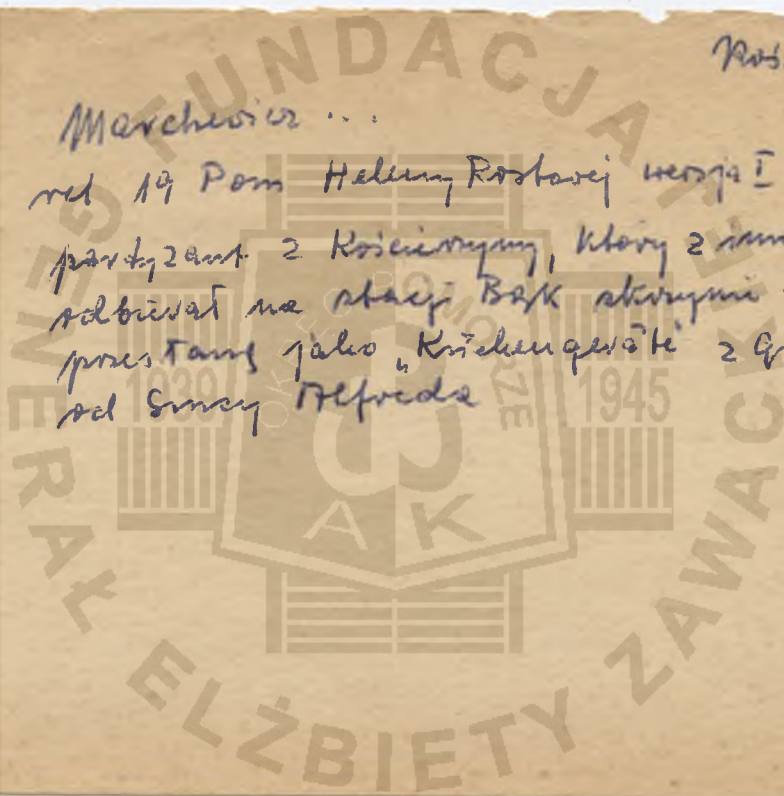 Koś
Marchewicz ...
rel 19 Pom Heleny Rostowej wersja I
partyzant z Kościerzyny, który z inn
odbierał na stacji Bąk skrzynie
przesłane jako „Küchengeräte" z G
od Smacy Alfreda
FUNDACJA
GENERAŁ ELŻBIETY ZAWACKIEJ
OKRĘG POMORZE
1939 1945
AK